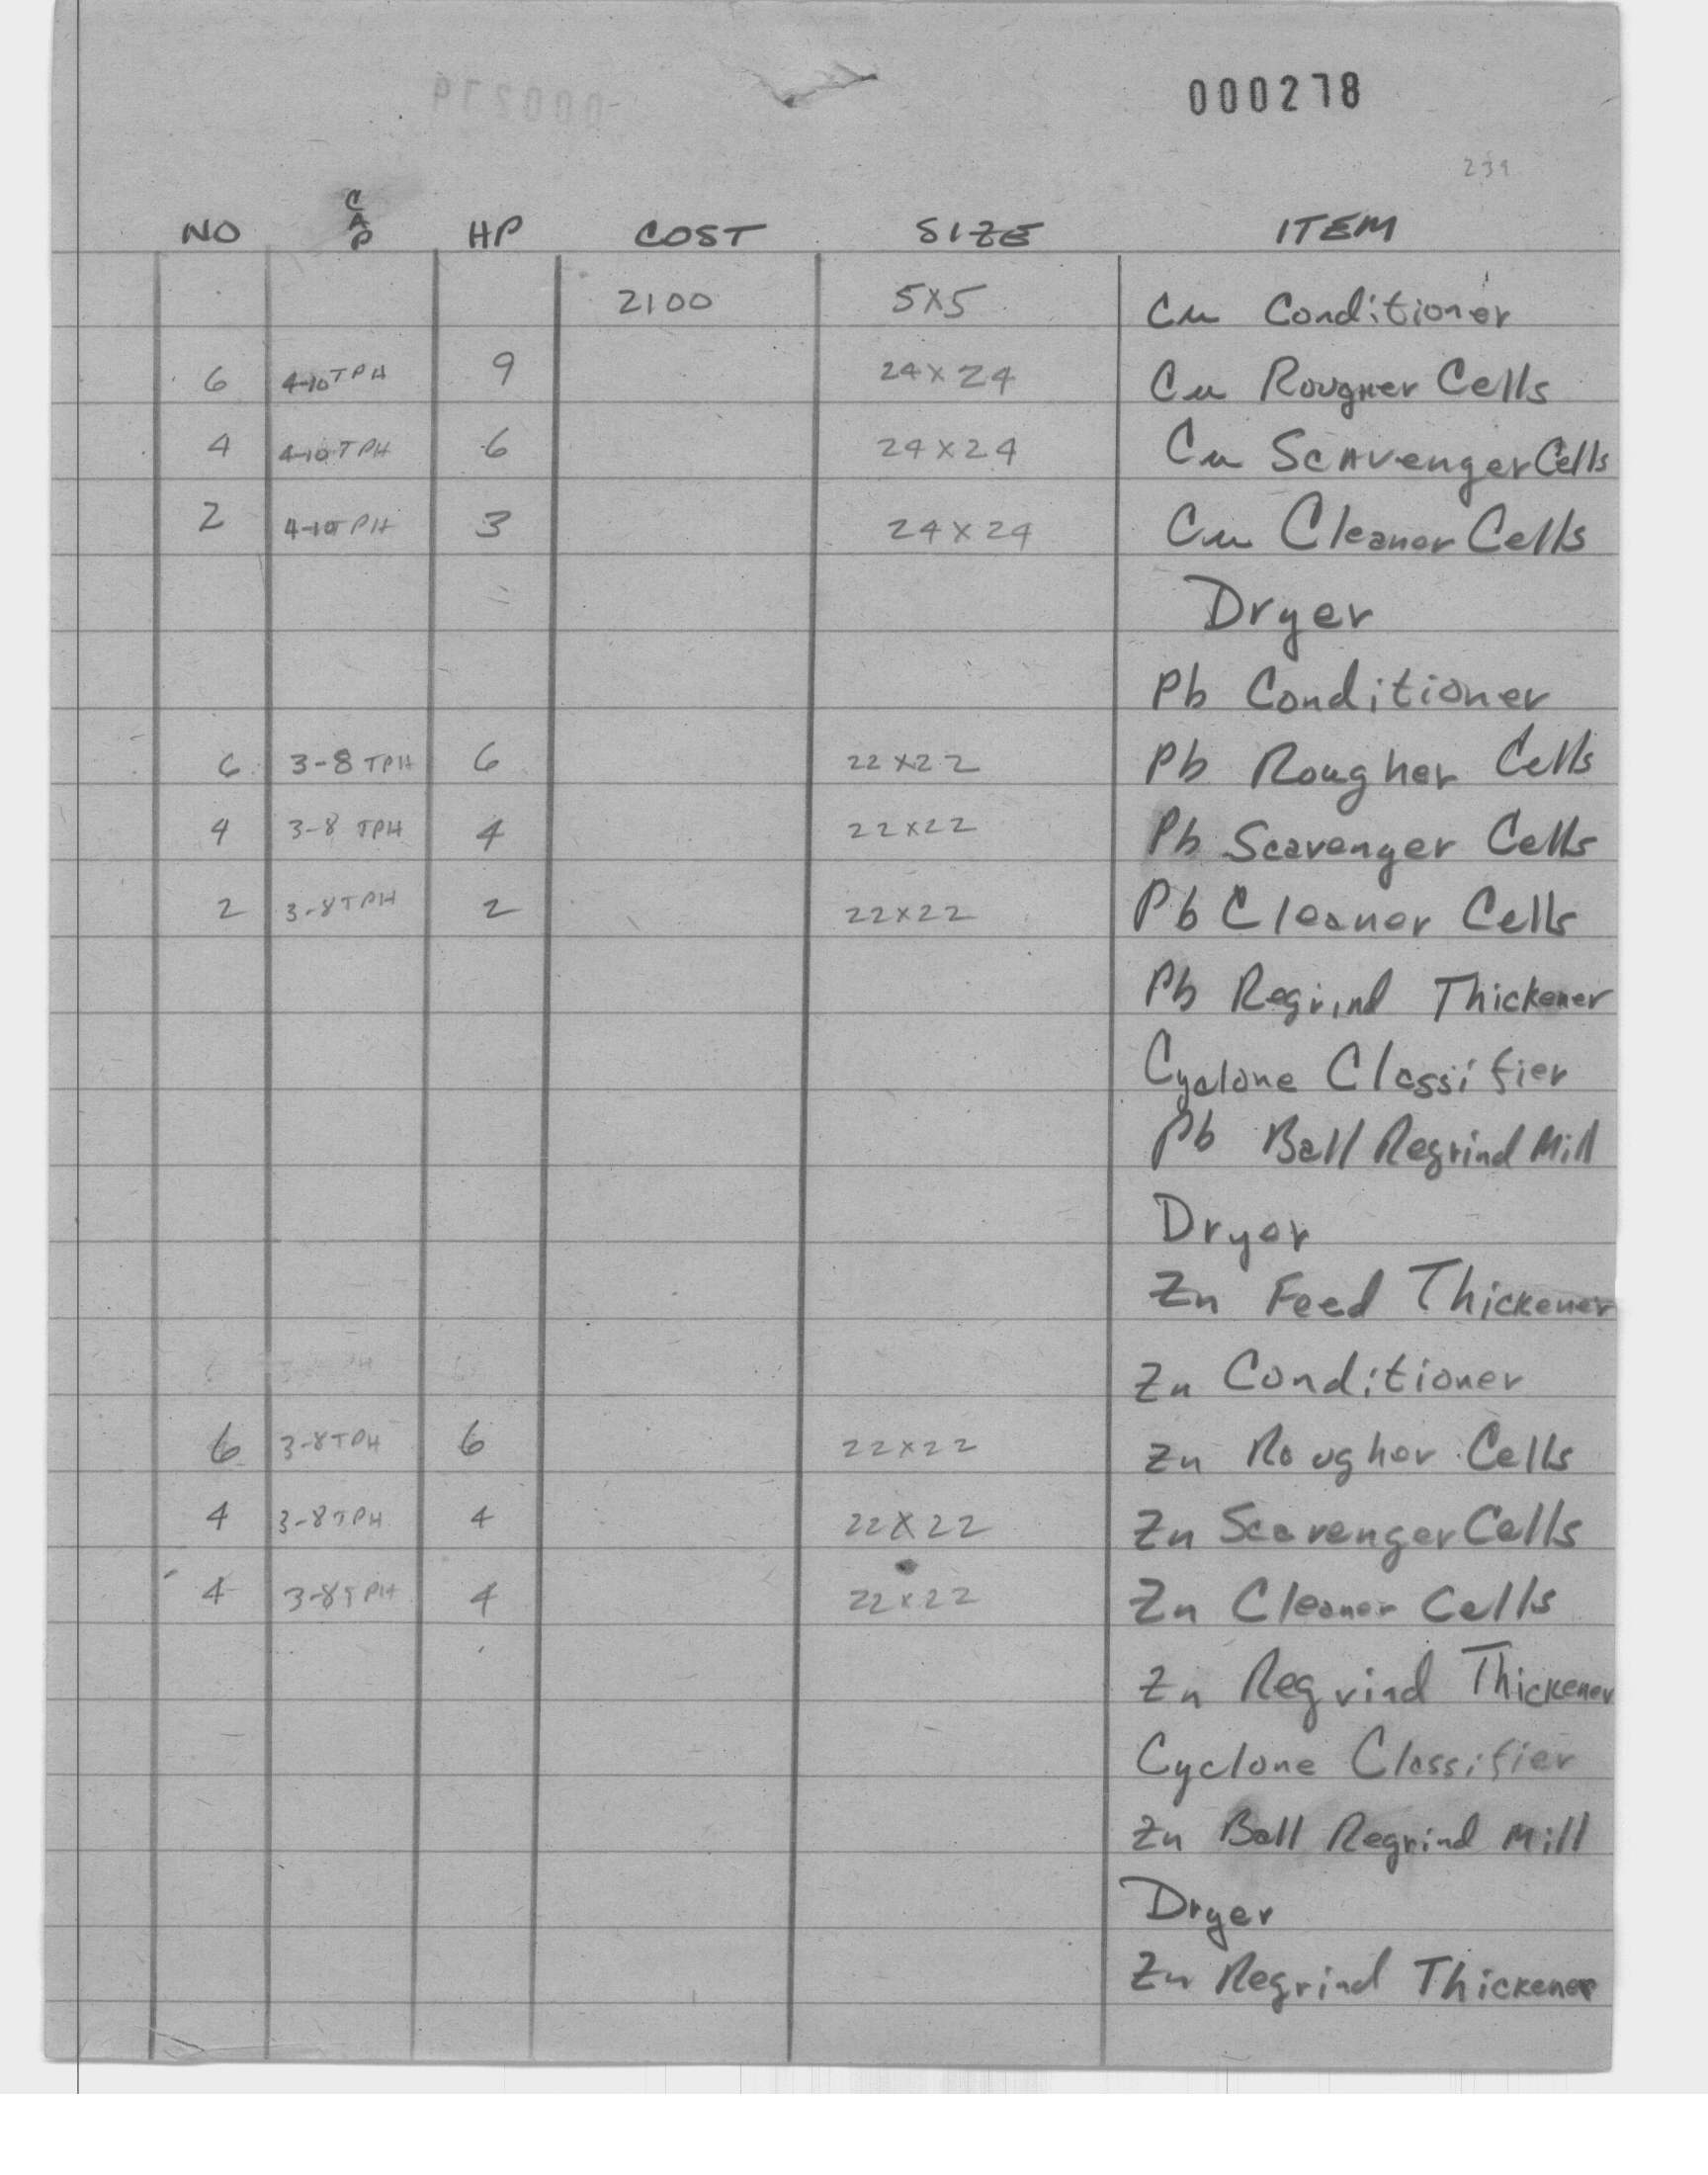 000278
239
NO CAP HP COST SIZE ITEM
2100 5X5 Cu Conditioner
6 4-10 TPH 9 24X24 Cu Rougher Cells
4 4-10 TPH 6 24X24 Cu Scavenger Cells
2 4-10 TPH 3 24X24 Cu Cleaner Cells
Dryer
Pb Conditioner
6 3-8 TPH 6 22X22 Pb Rougher Cells
4 3-8 TPH 4 22X22 Pb Scavenger Cells
2 3-8 TPH 2 22X22 Pb Cleaner Cells
Pb Regrind Thickener
Cyclone Classifier
Pb Ball Regrind Mill
Dryer
Zn Feed Thickener
Zn Conditioner
6 3-8 TPH 6 22X22 Zn Rougher Cells
4 3-8 TPH 4 22X22 Zn Scavenger Cells
4 3-8 TPH 4 22X22 Zn Cleaner Cells
Zn Regrind Thickener
Cyclone Classifier
Zn Ball Regrind Mill
Dryer
Zn Regrind Thickener